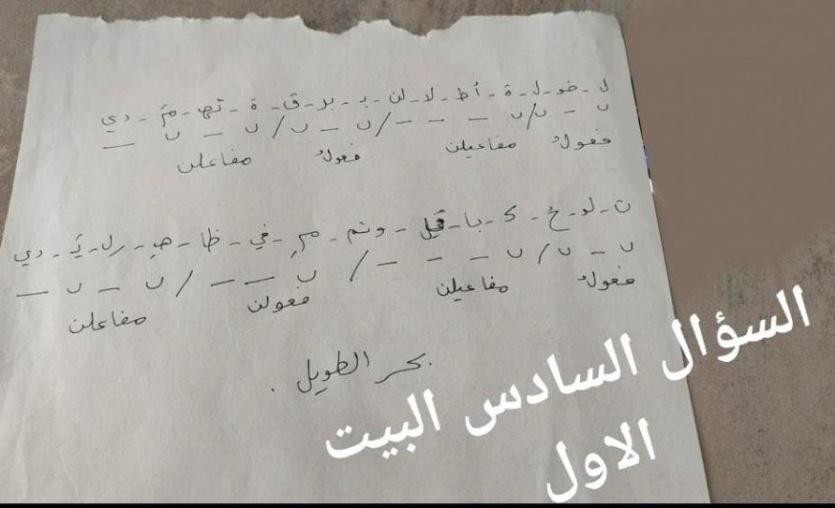 ل - خو - ل - ة - أط - لا - لن - ب - بر - ق - ة - ثه - م - دي
ں - ں / ں - - - / ں - ں / ں - ں -
فعولُ مفاعيلن فعولُ مفاعلن
ت - لو - ح - ك - با - قل - وشم - م - في - ظا - هـ - رل - ي - دي
ں - ں / ں - - - / ں - - / ں - ں -
فعولُ مفاعيلن فعولن مفاعلن
بحر الطويل .
السؤال السادس البيت
الاول